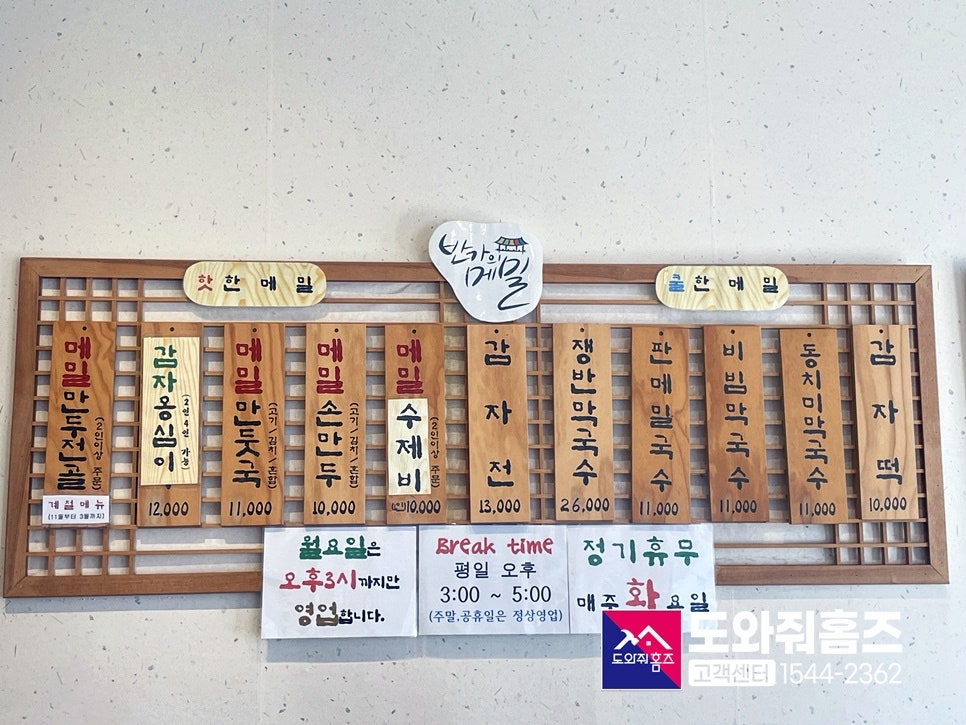 반가의
메밀
핫한메밀
쿨한메밀
메밀만두전골
(2인이상 주문)
계절메뉴
(11월부터 3월까지)
감자옹심이
(2인4인 가능)
12,000
메밀만둣국
(고기/김치/혼합)
11,000
메밀손만두
(고기/김치/혼합)
10,000
메밀수제비
(2인이상 주문)
10,000
감자전
13,000
쟁반막국수
26,000
판메밀국수
11,000
비빔막국수
11,000
동치미막국수
11,000
감자떡
10,000
월요일은
오후3시까지만
영업합니다.
Break time
평일 오후
3:00 ~ 5:00
(주말,공휴일은 정상영업)
정기휴무
매주 화요일
도와줘홈즈
도와줘홈즈
고객센터 1544-2362